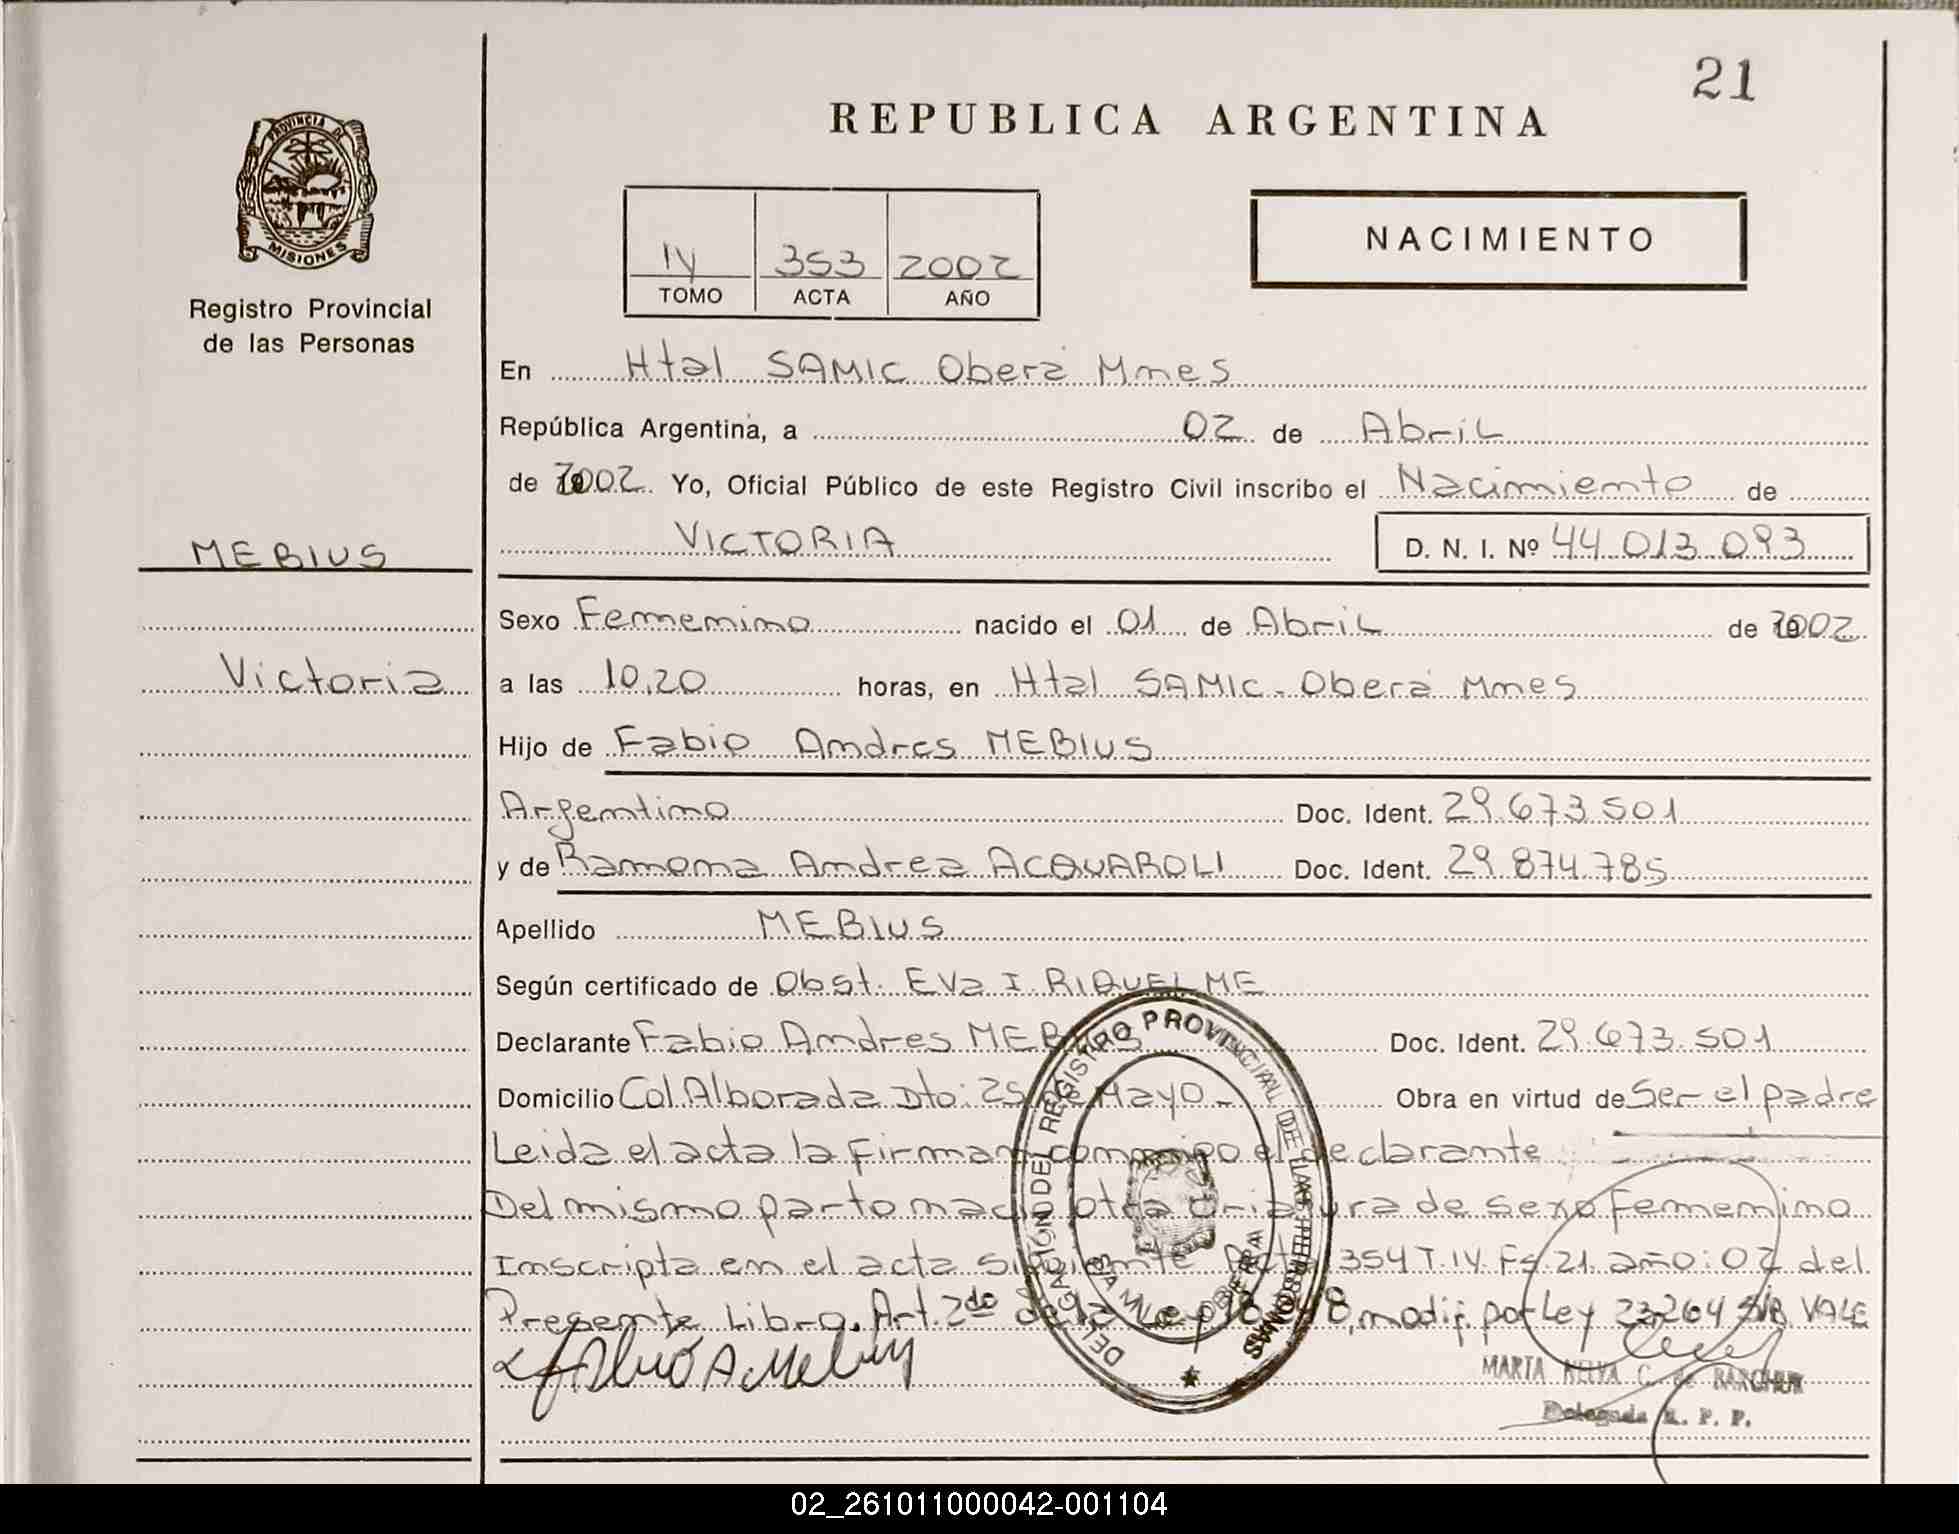 21
REPUBLICA ARGENTINA
PROVINCIA DE
MISIONES
Registro Provincial
de las Personas
IV 353 2002
TOMO ACTA AÑO
NACIMIENTO
En Htal SAMIC Oberá Mnes
República Argentina, a 02 de Abril
de 2002. Yo, Oficial Público de este Registro Civil inscribo el Nacimiento de
VICTORIA D. N. I. Nº 44 013 093
MEBIUS
Sexo Femenino nacido el 01 de Abril de 2002
Victoria
a las 10,20 horas, en Htal SAMIC - Oberá Mnes
Hijo de Fabio Andres MEBIUS
Argentino Doc. Ident. 29.673.501
y de Ramona Andrea ACQUAROLI Doc. Ident. 29.874.785
Apellido MEBIUS
Según certificado de Obst. Eva I. RIQUELME
Declarante Fabio Andres MEBIUS Doc. Ident. 29.673.501
Domicilio Col. Alborada Dto: 25 de Mayo - Obra en virtud de Ser el padre
Leida el acta la firman conmigo el declarante
Del mismo parto nació otra criatura de sexo femenino
Inscripta en el acta siguiente Acta 354 T. IV Fs. 21 año: 02 del
Presente Libro. Art. 2do de la Ley 18.248, modif. por Ley 23264 S/B VALE
DELEGACIÓN DEL REGISTRO PROVINCIAL DE LAS PERSONAS
MARTA NELVA C. de
Delegada R. P. P.
02_261011000042-001104